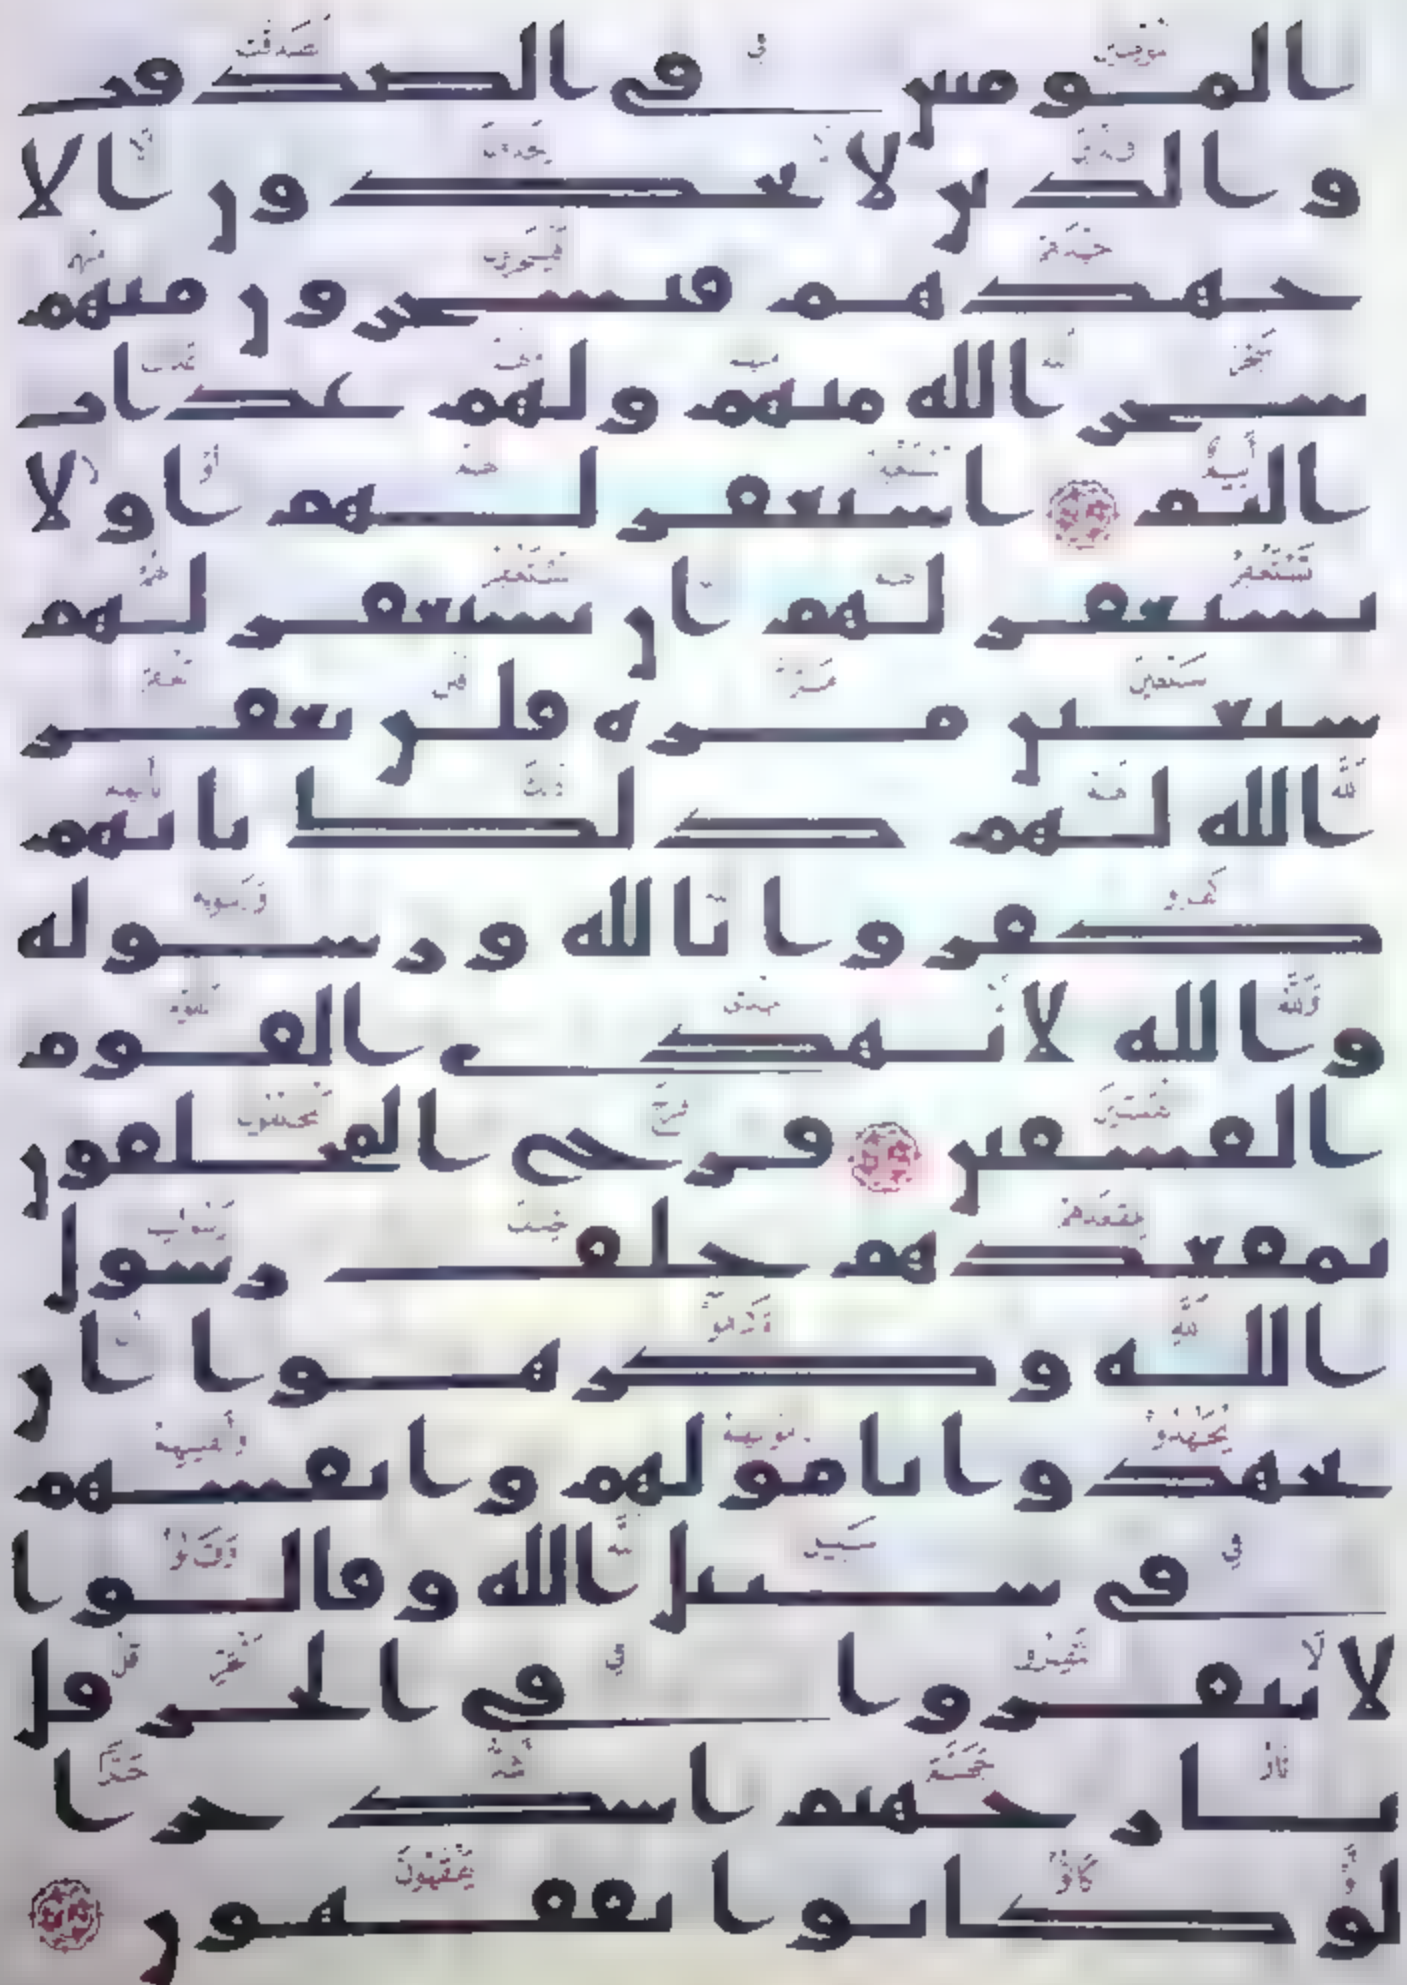 المومنين في الصدقت
والذين لا يجدون الا
جهدهم فيسخرون منهم
سخر الله منهم ولهم عذاب
اليم استغفر لهم او لا
تستغفر لهم ان تستغفر لهم
سبعين مره فلن يغفر
الله لهم ذلك بانهم
كفروا بالله ورسوله
والله لا يهدي القوم
الفسقين فرح المخلفون
بمقعدهم خلف رسول
الله وكرهوا ان
يجهدوا بامولهم وانفسهم
في سبيل الله وقالوا
لا تنفروا في الحر قل
نار جهنم اشد حرا
لو كانوا يفقهون